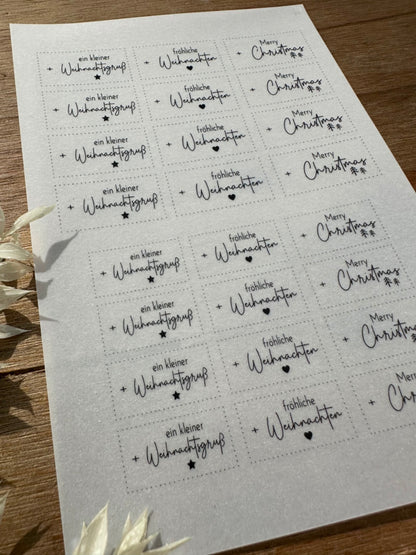 ein kleiner
+ Weihnachtsgruß
fröhliche
+ Weihnachten
Merry
+ Christmas
ein kleiner
+ Weihnachtsgruß
fröhliche
+ Weihnachten
Merry
+ Christmas
ein kleiner
+ Weihnachtsgruß
fröhliche
+ Weihnachten
Merry
+ Christmas
ein kleiner
+ Weihnachtsgruß
fröhliche
+ Weihnachten
Merry
+ Christmas
ein kleiner
+ Weihnachtsgruß
fröhliche
+ Weihnachten
Merry
+ Christmas
ein kleiner
+ Weihnachtsgruß
fröhliche
+ Weihnachten
Merry
+ Christmas
ein kleiner
+ Weihnachtsgruß
fröhliche
+ Weihnachten
Merry
+ Christmas
ein kleiner
+ Weihnachtsgruß
fröhliche
+ Weihnachten
Merry
+